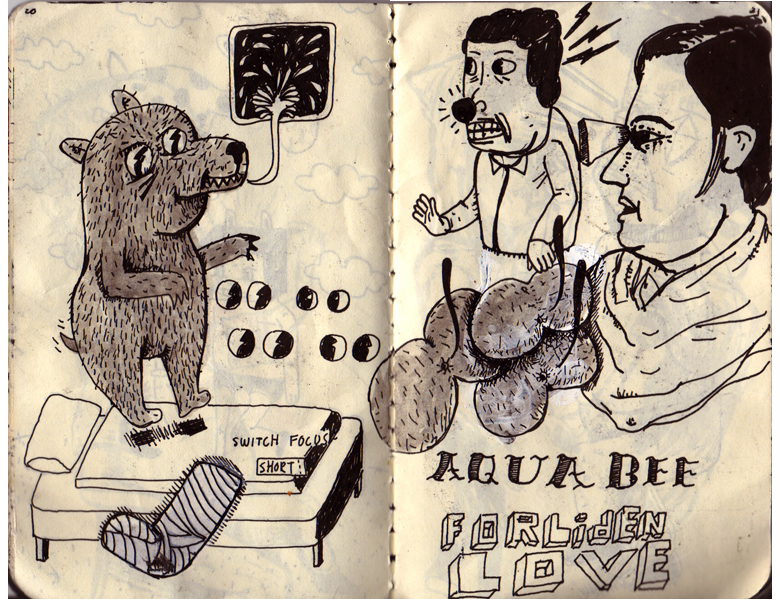 20
SWITCH FOCUS
SHORT:
AQUA BEE
FORLidEN
LOVE